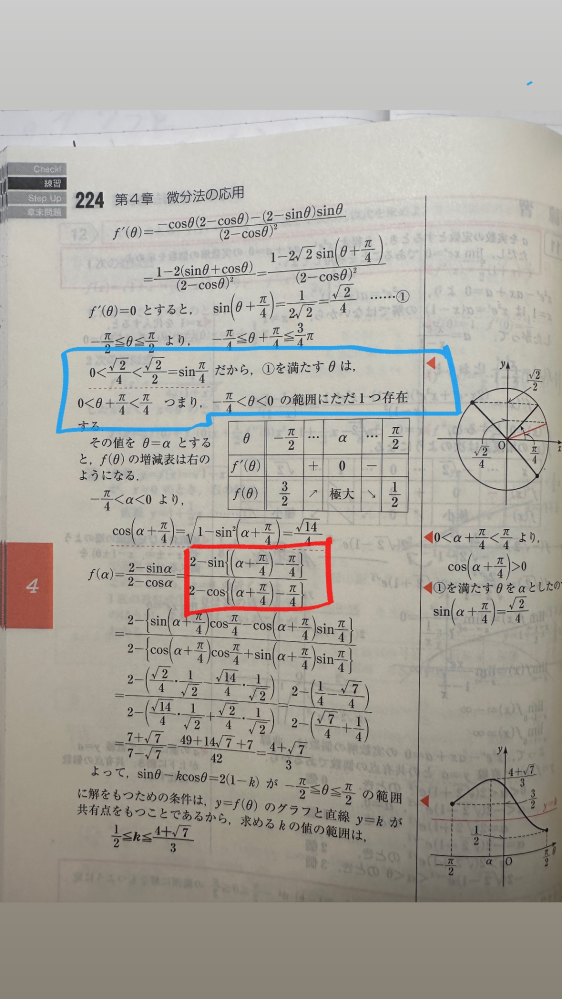 Check!
練習
Step Up
章末問題
224 第4章 微分法の応用
f'(θ)=\frac{-cosθ(2-cosθ)-(2-sinθ)sinθ}{(2-cosθ)^2}
=\frac{1-2(sinθ+cosθ)}{(2-cosθ)^2}=\frac{1-2√2 sin(θ+\frac{π}{4})}{(2-cosθ)^2}
f'(θ)=0 とすると, sin(θ+\frac{π}{4})=\frac{1}{2√2}=\frac{√2}{4} ……①
-\frac{π}{2}≦θ≦\frac{π}{2} より, -\frac{π}{4}≦θ+\frac{π}{4}≦\frac{3}{4}π
0<\frac{√2}{4}<\frac{√2}{2}=sin\frac{π}{4} だから, ①を満たす θ は,
0<θ+\frac{π}{4}<\frac{π}{4} つまり, -\frac{π}{4}<θ<0 の範囲にただ1つ存在
する.
その値を θ=α とする
と, f(θ) の増減表は右の
ようになる.
θ -\frac{π}{2} … α … \frac{π}{2}
f'(θ) + 0 -
f(θ) \frac{3}{2} ↗ 極大 ↘ \frac{1}{2}
-\frac{π}{4}<α<0 より,
cos(α+\frac{π}{4})=\sqrt{1-sin^2(α+\frac{π}{4})}=\frac{√14}{4}
f(α)=\frac{2-sinα}{2-cosα}=\frac{2-sin{(α+\frac{π}{4})-\frac{π}{4}}}{2-cos{(α+\frac{π}{4})-\frac{π}{4}}}
=\frac{2-{sin(α+\frac{π}{4})cos\frac{π}{4}-cos(α+\frac{π}{4})sin\frac{π}{4}}}{2-{cos(α+\frac{π}{4})cos\frac{π}{4}+sin(α+\frac{π}{4})sin\frac{π}{4}}}
=\frac{2-(\frac{√2}{4}・\frac{1}{√2}-\frac{√14}{4}・\frac{1}{√2})}{2-(\frac{√14}{4}・\frac{1}{√2}+\frac{√2}{4}・\frac{1}{√2})}=\frac{2-(\frac{1}{4}-\frac{√7}{4})}{2-(\frac{√7}{4}+\frac{1}{4})}
=\frac{7+√7}{7-√7}=\frac{49+14√7+7}{42}=\frac{4+√7}{3}
よって, sinθ-kcosθ=2(1-k) が -\frac{π}{2}≦θ≦\frac{π}{2} の範囲
に解をもつための条件は, y=f(θ) のグラフと直線 y=k が
共有点をもつことであるから, 求める k の値の範囲は,
\frac{1}{2}≦k≦\frac{4+√7}{3}
4
y
\frac{√2}{2}
O
x
\frac{√2}{4}
\frac{π}{4}
0<α+\frac{π}{4}<\frac{π}{4} より,
cos(α+\frac{π}{4})>0
①を満たす θ を α としたの
sin(α+\frac{π}{4})=\frac{√2}{4}
y
\frac{4+√7}{3}
\frac{3}{2}
y=k
\frac{1}{2}
-\frac{π}{2} α O \frac{π}{2} θ